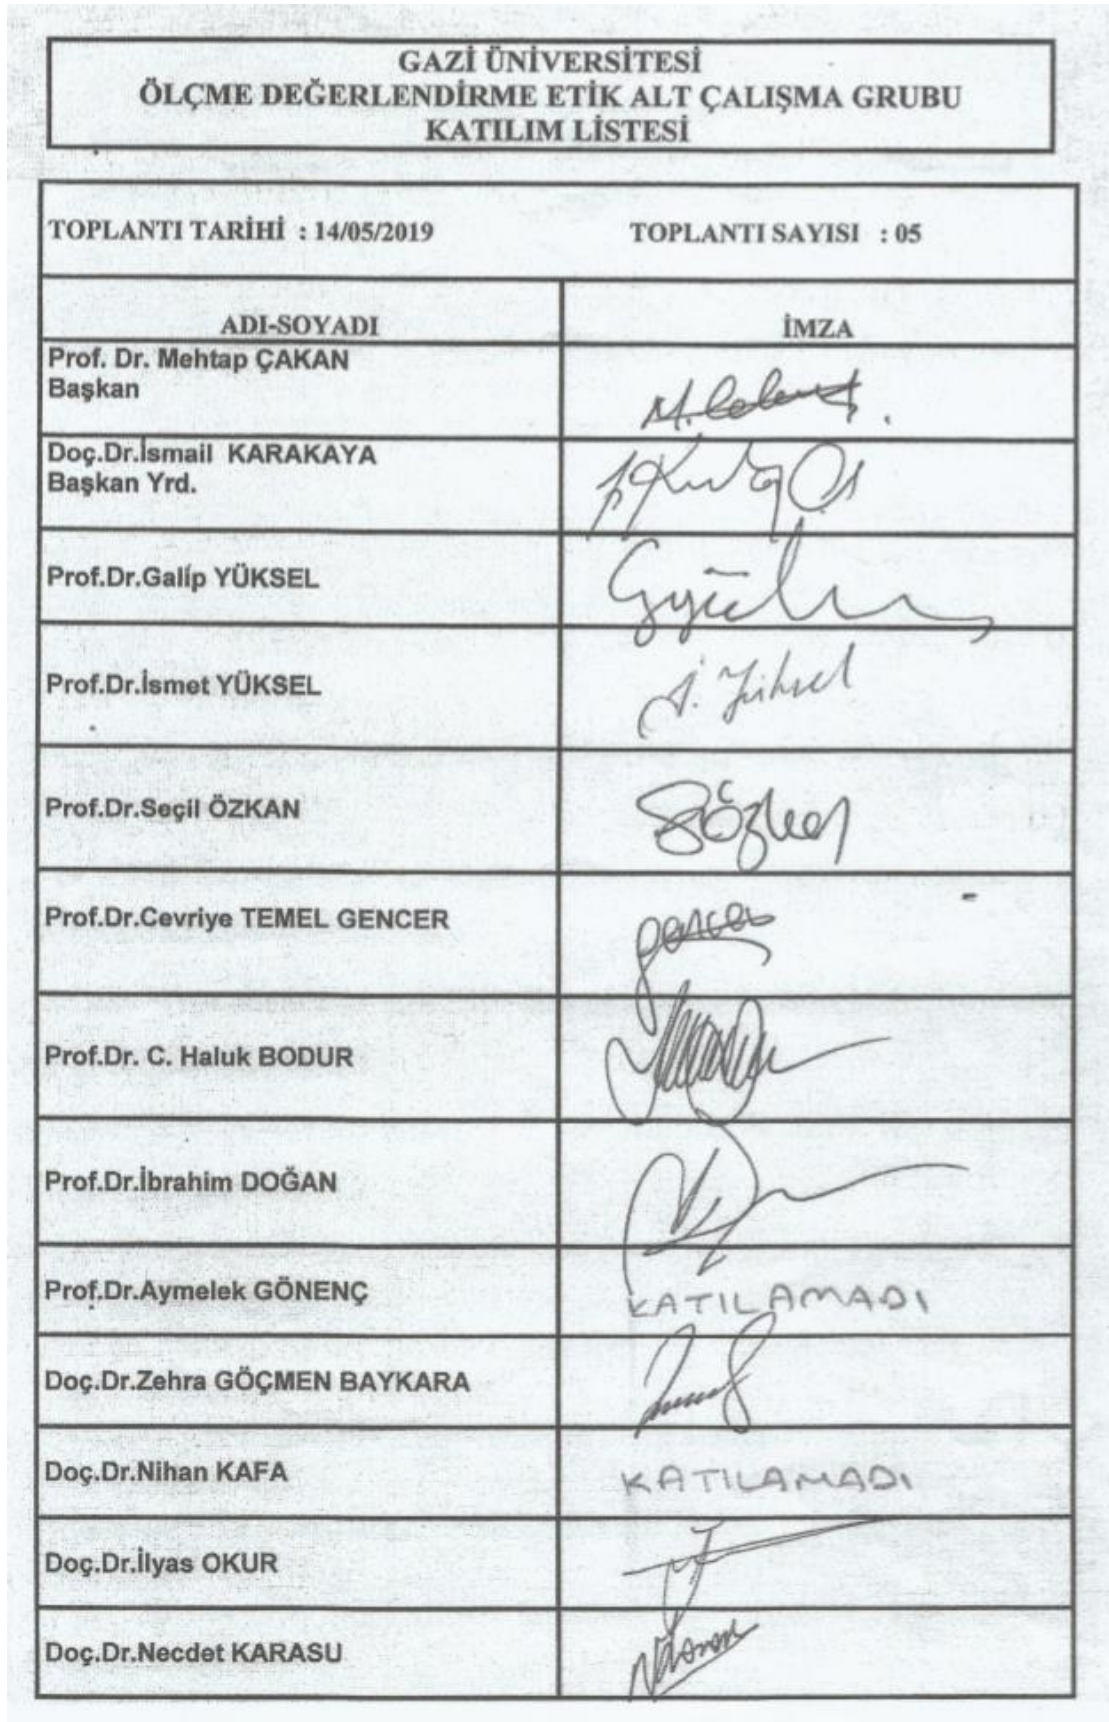 GAZİ ÜNİVERSİTESİ
ÖLÇME DEĞERLENDİRME ETİK ALT ÇALIŞMA GRUBU
KATILIM LİSTESİ
TOPLANTI TARİHİ : 14/05/2019 TOPLANTI SAYISI : 05
ADI-SOYADI İMZA
Prof. Dr. Mehtap ÇAKAN
Başkan
Doç.Dr.İsmail KARAKAYA
Başkan Yrd.
Prof.Dr.Galip YÜKSEL
Prof.Dr.İsmet YÜKSEL İ. Yüksel
Prof.Dr.Seçil ÖZKAN
Prof.Dr.Cevriye TEMEL GENCER gencer
Prof.Dr. C. Haluk BODUR
Prof.Dr.İbrahim DOĞAN
Prof.Dr.Aymelek GÖNENÇ KATILAMADI
Doç.Dr.Zehra GÖÇMEN BAYKARA
Doç.Dr.Nihan KAFA KATILAMADI
Doç.Dr.İlyas OKUR
Doç.Dr.Necdet KARASU